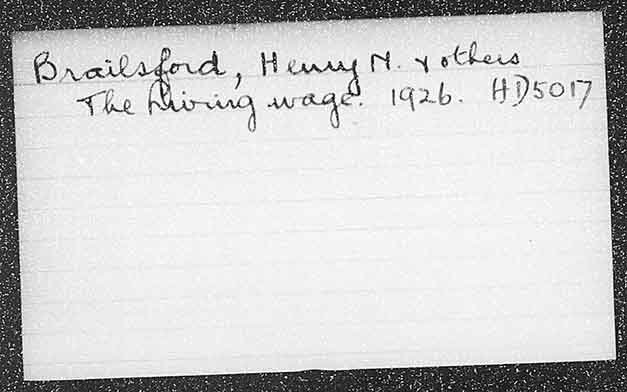 Brailsford, Henry N. & others
The Living wage. 1926. HD5017